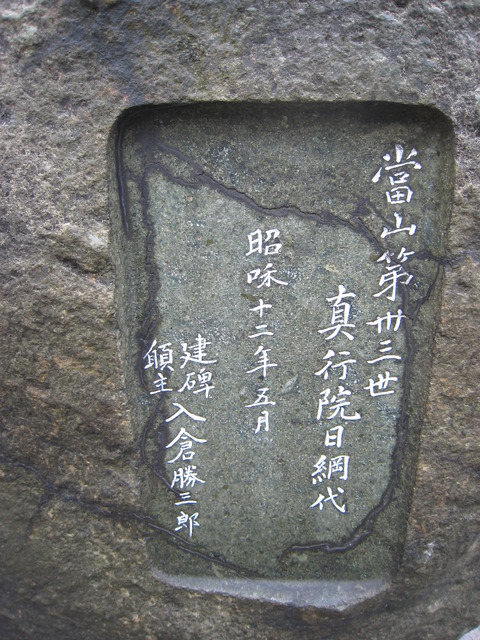 當山第卅三世
真行院日綱代
昭和十二年五月
建碑
願主
入倉勝三郎